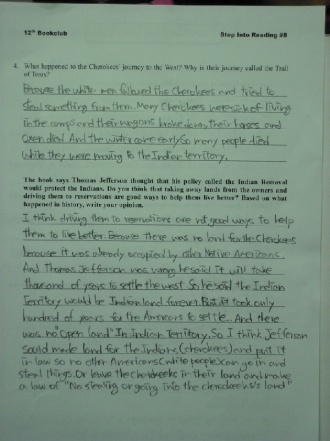 12th Bookclub Step Into Reading #8
4. What happened to the Cherokees' journey to the West? Why is their journey called the Trail
of Tears?
Because the white men followed the Cherokees and tried to
steal something from them. Many Cherokees were sick of living
in the camps and their wagons broke down, their horses and
oxen died And the winter came early So many people died
while they were moving to the Indian territory.
The book says Thomas Jefferson thought that his policy called the Indian Removal
would protect the Indians. Do you think that taking away lands from the owners and
driving them to reservations are good ways to help them live better? Based on what
happened in history, write your opinion.
I think driving them to reservations are not good ways to help
them to live better. Because there was no land for the Cherokees
because it was already occupied by other Native Americans.
And Thomas Jefferson was wrong he said it will take
thousand of years to settle the west. So he said the Indian
Territory would be Indian land forever. But it took only
hundred of years for the Americans to settle. And there
was no "Open land" In indian Territory. So I think Jefferson
sould made land for the Indians (cherokees) and put it
in law so no other Americans (white people) can go in and
steal things. Or leave the cherokeeks in their land and make
a law of "No stealing or going into the cherokeeks's land"